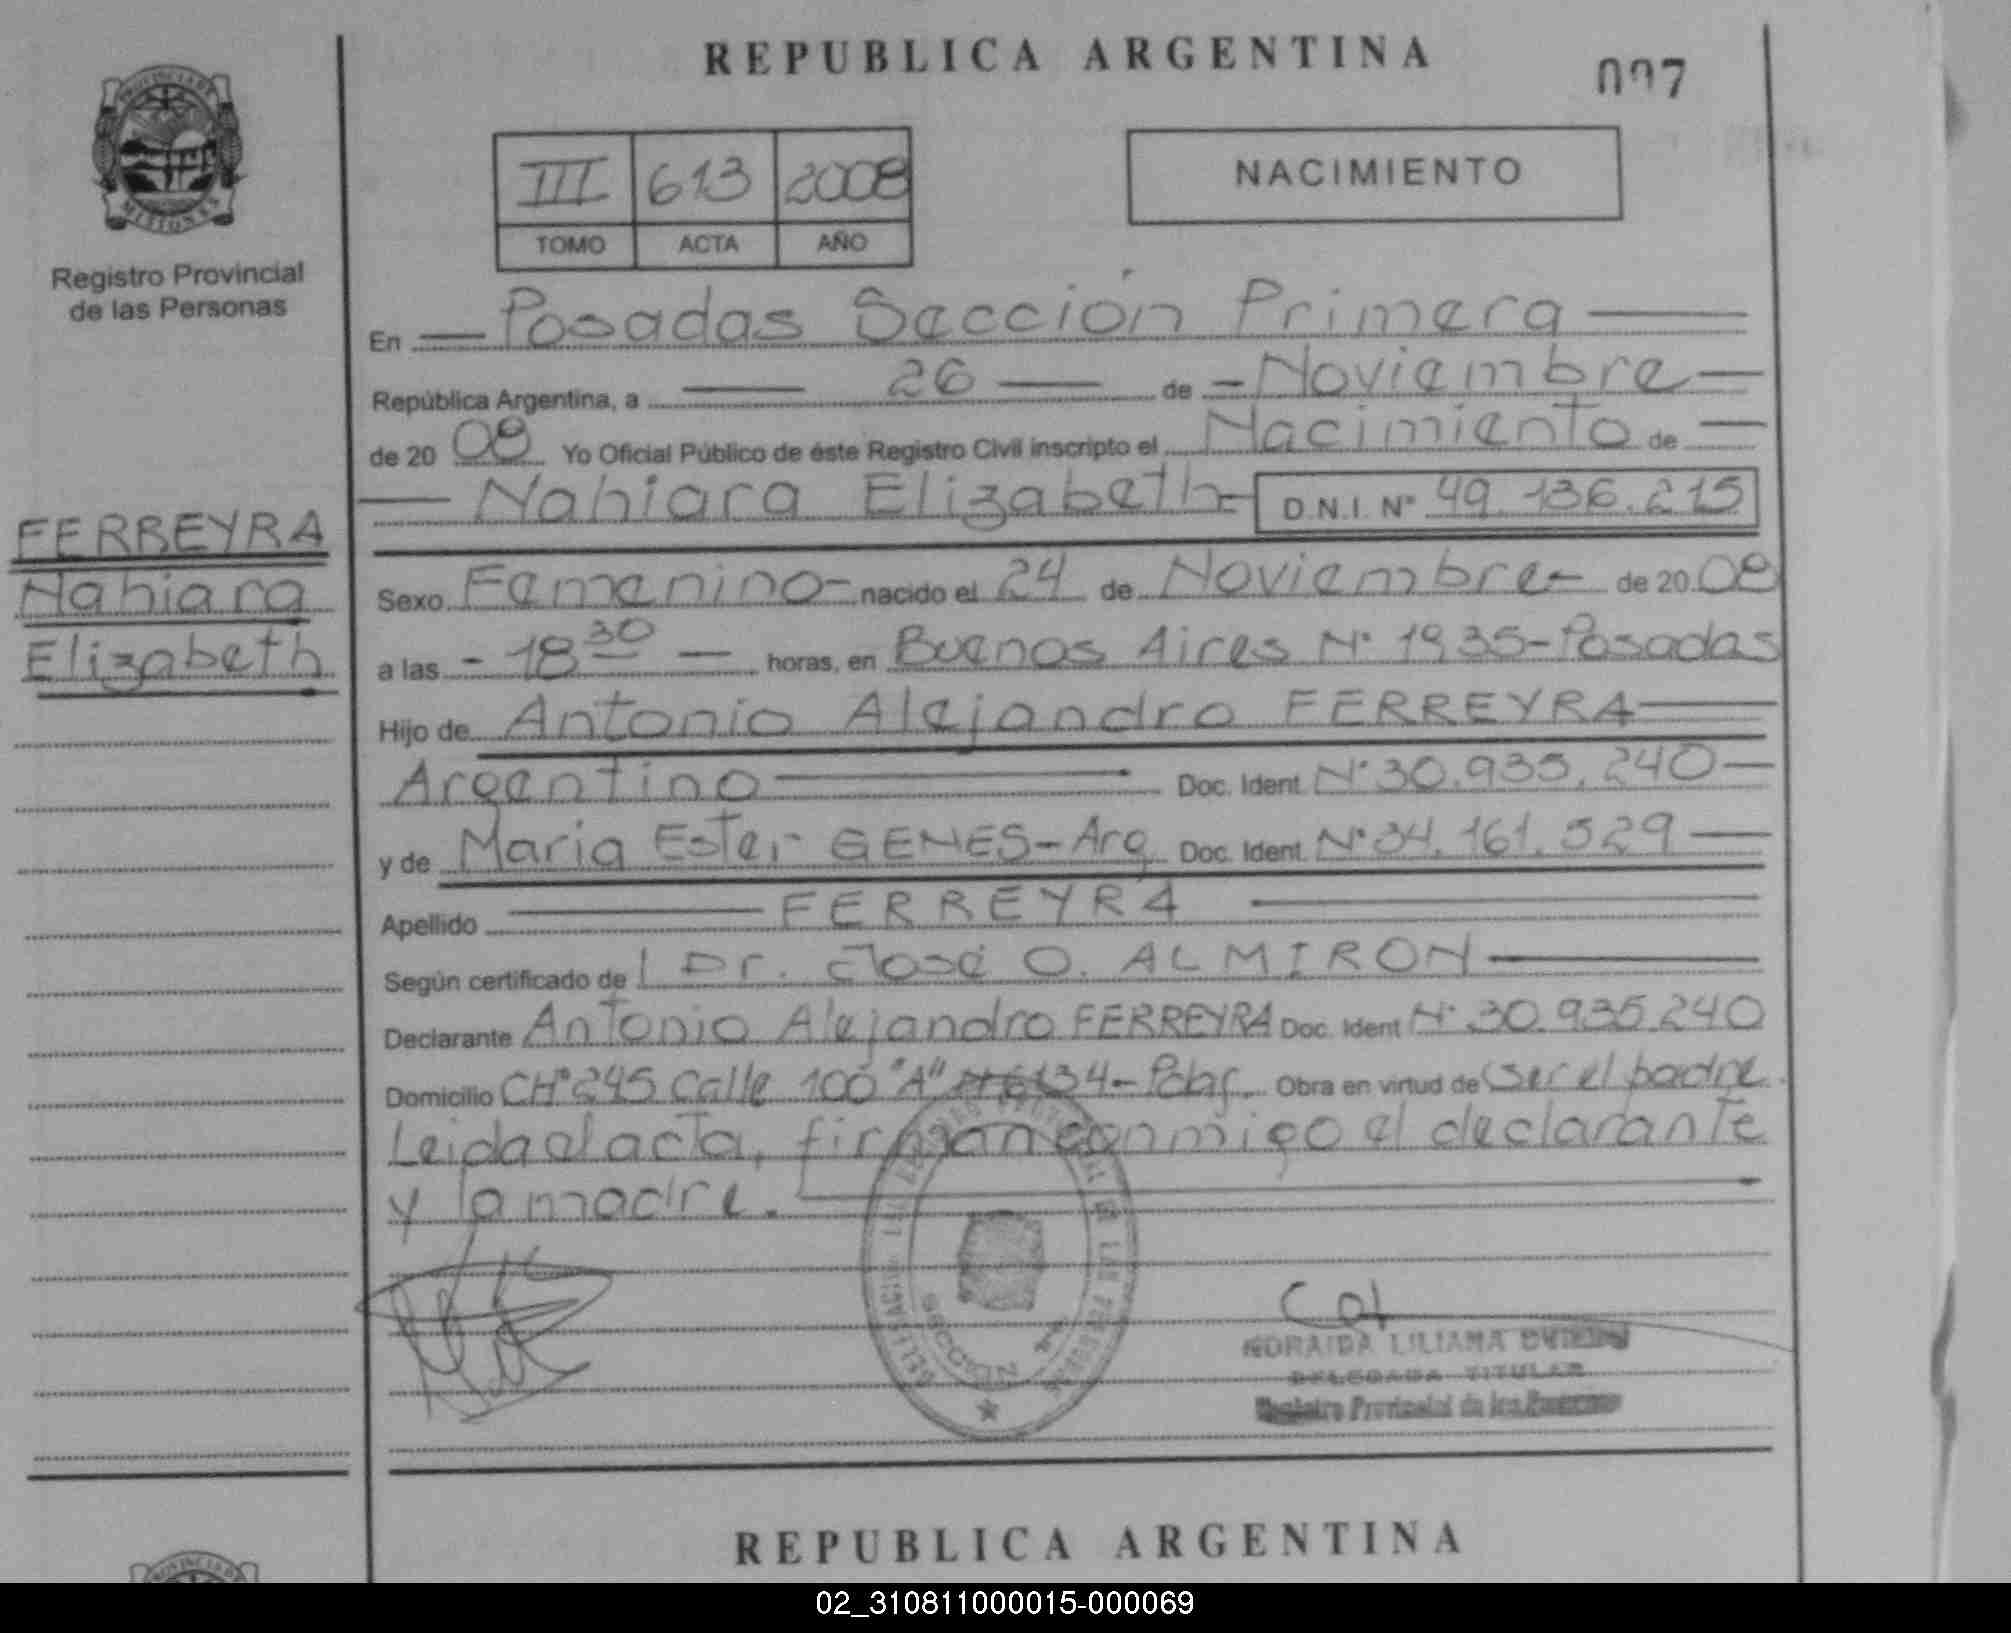 REPUBLICA ARGENTINA
007
PROVINCIA DE
MISIONES
Registro Provincial
de las Personas
III 613 2008
TOMO ACTA AÑO
NACIMIENTO
En Posadas Sección Primera
República Argentina, a 26 de Noviembre
de 20 08 Yo Oficial Público de éste Registro Civil inscripto el Nacimiento de
Nahiara Elizabeth D.N.I. Nº 49.136.215
FERREYRA
Nahiara
Elizabeth
Sexo Femenino nacido el 24 de Noviembre de 20 08
a las 18 30 horas, en Buenos Aires Nº 1935-Posadas
Hijo de Antonio Alejandro FERREYRA
Argentino Doc. Ident. Nº 30.935.240
y de Maria Ester GENES-Arg Doc. Ident. Nº 34.161.529
Apellido FERREYRA
Según certificado de Dr. José O. ALMIRON
Declarante Antonio Alejandro FERREYRA Doc. Ident Nº 30.935.240
Domicilio CHº 245 Calle 100 "A" Nº 6134- Obra en virtud de ser el padre.
Leida el acta, firman conmigo el declarante
y la madre.
SECCION
LILIANA
DELEGADA TITULAR
Registro Provincial de las Personas
REPUBLICA ARGENTINA
02_310811000015-000069